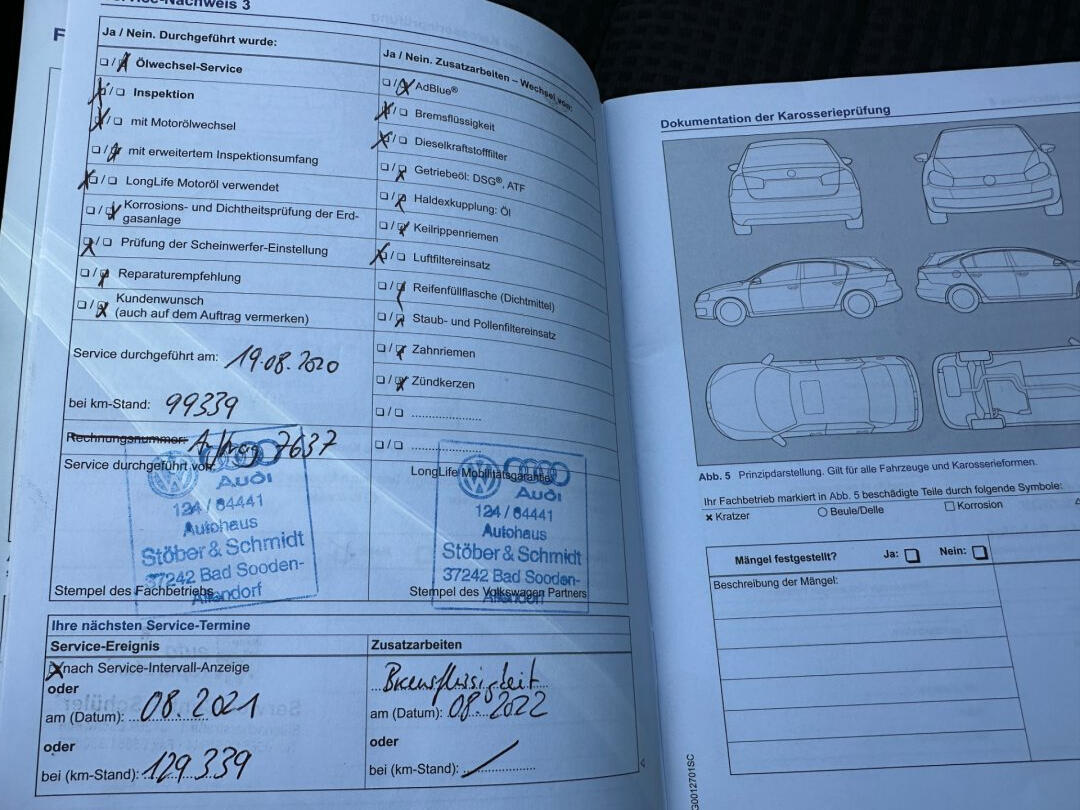 Service-Nachweis 3
Ja / Nein. Durchgeführt wurde:
Ölwechsel-Service
Inspektion
mit Motorölwechsel
mit erweitertem Inspektionsumfang
LongLife Motoröl verwendet
Korrosions- und Dichtheitsprüfung der Erd-
gasanlage
Prüfung der Scheinwerfer-Einstellung
Reparaturempfehlung
Kundenwunsch
(auch auf dem Auftrag vermerken)
Service durchgeführt am: 19.08.2020
bei km-Stand: 99339
Rechnungsnummer: Auftrag 7637
Service durchgeführt von:
AUDI
124 / 04441
Autohaus
Stöber & Schmidt
37242 Bad Sooden-
Allendorf
Stempel des Fachbetriebs
Ja / Nein. Zusatzarbeiten – Wechsel von:
AdBlue®
Bremsflüssigkeit
Dieselkraftstofffilter
Getriebeöl: DSG®, ATF
Haldexkupplung: Öl
Keilrippenriemen
Luftfiltereinsatz
Reifenfüllflasche (Dichtmittel)
Staub- und Pollenfiltereinsatz
Zahnriemen
Zündkerzen
LongLife Mobilitätsgarantie
AUDI
124 / 04441
Autohaus
Stöber & Schmidt
37242 Bad Sooden-
Allendorf
Stempel des Volkswagen Partners
Ihre nächsten Service-Termine
Service-Ereignis
nach Service-Intervall-Anzeige
oder
am (Datum): 08.2021
oder
bei (km-Stand): 129.339
Zusatzarbeiten
Bremsflüssigkeit
am (Datum): 08.2022
oder
bei (km-Stand):
Dokumentation der Karosserieprüfung
Abb. 5 Prinzipdarstellung. Gilt für alle Fahrzeuge und Karosserieformen.
Ihr Fachbetrieb markiert in Abb. 5 beschädigte Teile durch folgende Symbole:
Kratzer
Beule/Delle
Korrosion
Mängel festgestellt? Ja: Nein:
Beschreibung der Mängel: